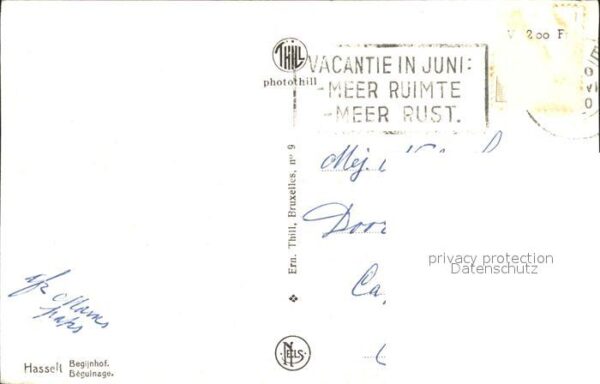 THILL
photothill
V 200 F
VACANTIE IN JUNI:
-MEER RUIMTE
-MEER RUST.
Mej.
Ern. Thill, Bruxelles, nº 9
privacy protection
Datenschutz
Mams
paps
NELS
Hasselt
Begijnhof.
Béguinage.